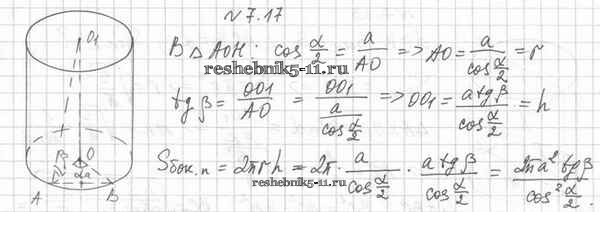 №7.17
В △AOH: cos α/2 = a/AO => AO = a/cos α/2 = r
reshebnik5-11.ru
tg β = OO1/AO = OO1/(a/cos α/2) => OO1 = a tg β/cos α/2 = h
Sбок.п = 2πrh = 2π · a/cos α/2 · a tg β/cos α/2 = 2πa² tg β/cos² α/2.
reshebnik5-11.ru
O1
β
O
A
B